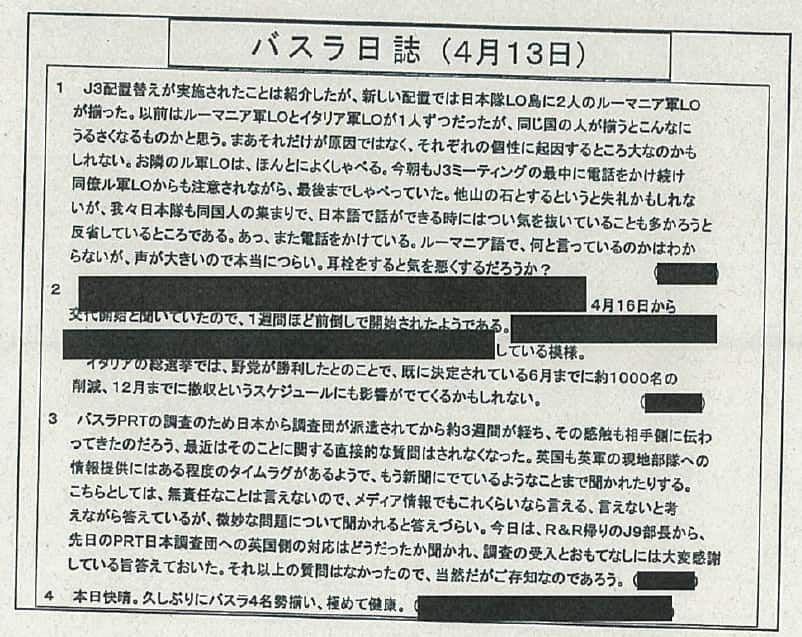 バスラ日誌（4月13日）
1 J3配置替えが実施されたことは紹介したが、新しい配置では日本隊LO島に2人のルーマニア軍LO
が揃った。以前はルーマニア軍LOとイタリア軍LOが1人ずつだったが、同じ国の人が揃うとこんなに
うるさくなるものかと思う。まあそれだけが原因ではなく、それぞれの個性に起因するところ大なのかも
しれない。お隣のル軍LOは、ほんとによくしゃべる。今朝もJ3ミーティングの最中に電話をかけ続け
同僚ル軍LOからも注意されながら、最後までしゃべっていた。他山の石とするというと失礼かもしれな
いが、我々日本隊も同国人の集まりで、日本語で話ができる時にはつい気を抜いていることも多かろうと
反省しているところである。あっ、また電話をかけている。ルーマニア語で、何と言っているのかはわか
らないが、声が大きいので本当につらい。耳栓をすると気を悪くするだろうか？
2
4月16日から
交代開始と聞いていたので、1週間ほど前倒しで開始されたようである。
している模様。
イタリアの総選挙では、野党が勝利したとのことで、既に決定されている6月までに約1000名の
削減、12月までに撤収というスケジュールにも影響がでてくるかもしれない。
3 バスラPRTの調査のため日本から調査団が派遣されてから約3週間が経ち、その感触も相手側に伝わ
ってきたのだろう、最近はそのことに関する直接的な質問はされなくなった。英国も英軍の現地部隊への
情報提供にはある程度のタイムラグがあるようで、もう新聞にでているようなことまで聞かれたりする。
こちらとしては、無責任なことは言えないので、メディア情報でもこれくらいなら言える、言えないと考
えながら答えているが、微妙な問題について聞かれると答えづらい。今日は、R&R帰りのJ9部長から、
先日のPRT日本調査団への英国側の対応はどうだったか聞かれ、調査の受入とおもてなしには大変感謝
している旨答えておいた。それ以上の質問はなかったので、当然だがご存知なのであろう。
4 本日快晴。久しぶりにバスラ4名勢揃い、極めて健康。